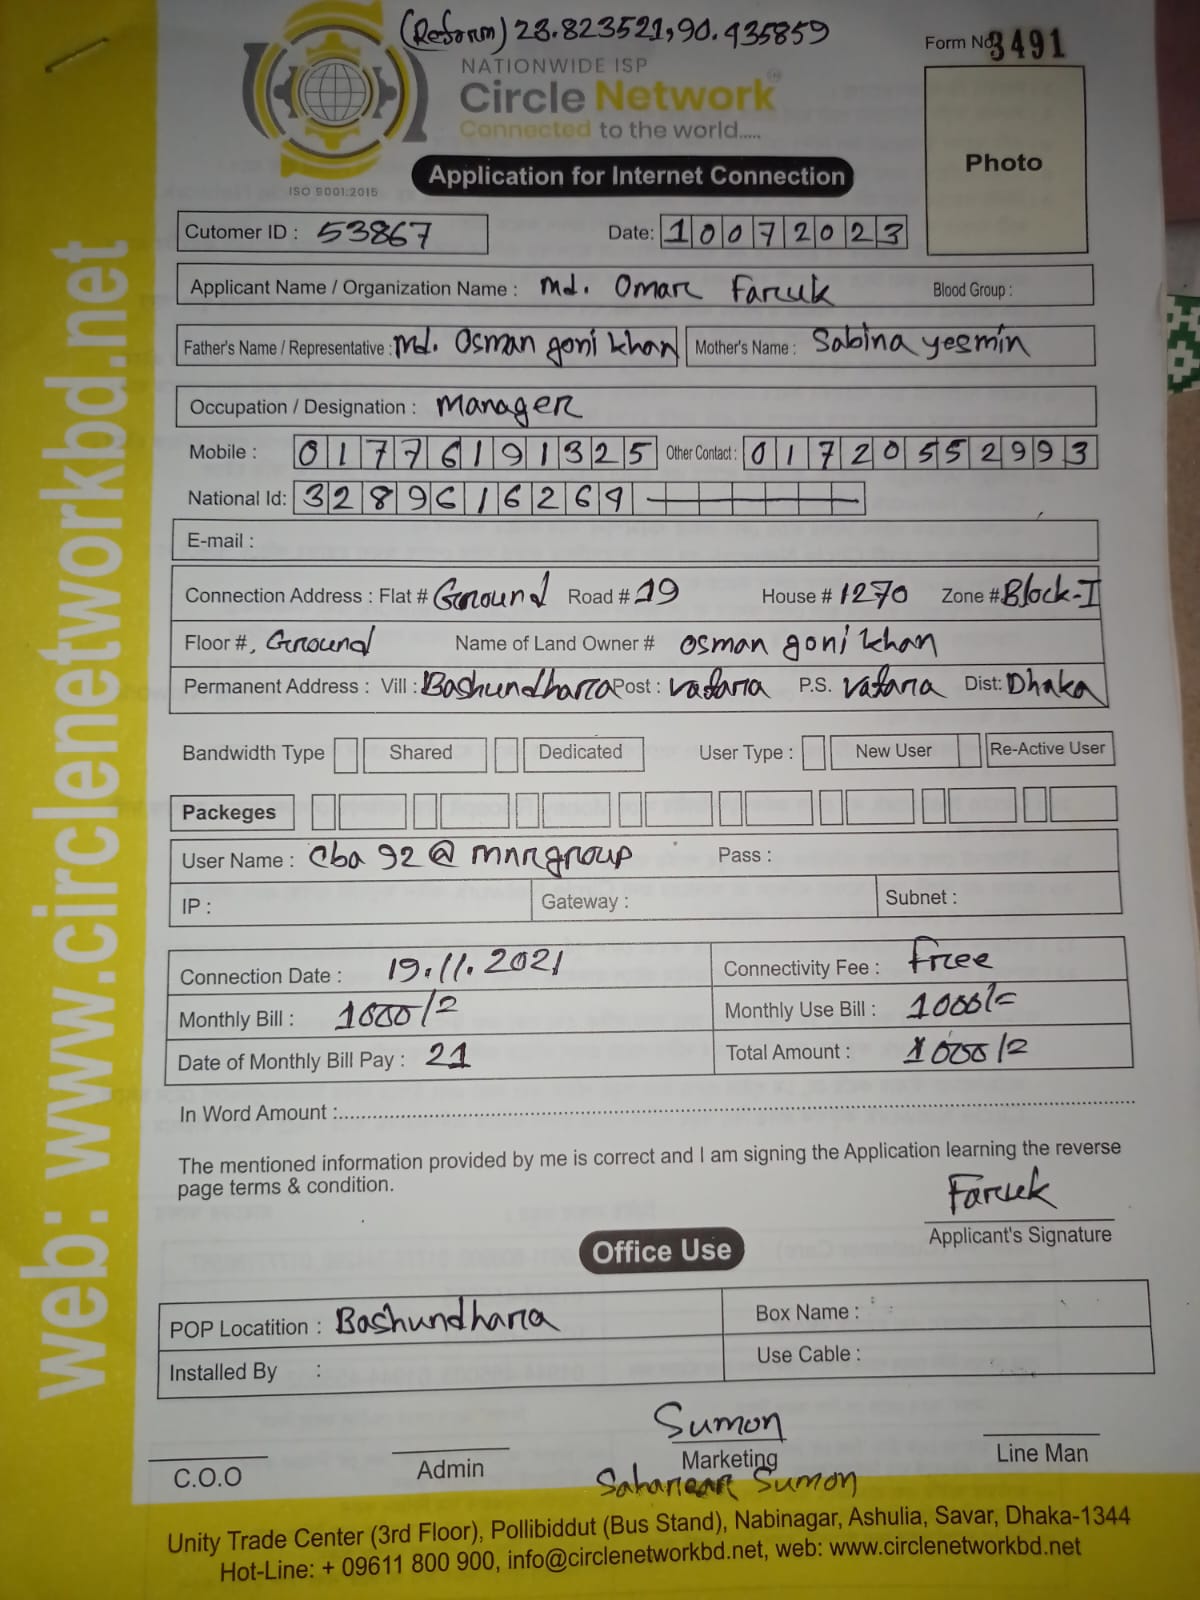 (Reform) 23.823521,90.435859
Form No 3491
NATIONWIDE ISP
Circle Network
Connected to the world.....
ISO 9001:2015
Application for Internet Connection
Photo
web: www.circlenetworkbd.net
Cutomer ID : 53867
Date: 10072023
Applicant Name / Organization Name : Md. Omar Faruk Blood Group :
Father's Name / Representative : Md. Osman goni khan Mother's Name : Sabina yesmin
Occupation / Designation : Manager
Mobile : 01776191325 Other Contact : 01720552993
National Id: 3289616269
E-mail :
Connection Address : Flat # Ground Road # 19 House # 1270 Zone # Block-I
Floor #, Ground Name of Land Owner # osman goni khan
Permanent Address : Vill : Bashundhara Post : vatara P.S. vatara Dist: Dhaka
Bandwidth Type Shared Dedicated User Type : New User Re-Active User
Packeges
User Name : Cba 92 @ mnrgroup Pass :
IP : Gateway : Subnet :
Connection Date : 19.11.2021 Connectivity Fee : Free
Monthly Bill : 1000/= Monthly Use Bill : 1000/=
Date of Monthly Bill Pay : 21 Total Amount : 1000/=
In Word Amount :
The mentioned information provided by me is correct and I am signing the Application learning the reverse
page terms & condition.
Faruk
Applicant's Signature
Office Use
POP Locatition : Bashundhara Box Name :
Installed By : Use Cable :
Sumon
C.O.O Admin Marketing Line Man
Sumon
Unity Trade Center (3rd Floor), Pollibiddut (Bus Stand), Nabinagar, Ashulia, Savar, Dhaka-1344
Hot-Line: + 09611 800 900, info@circlenetworkbd.net, web: www.circlenetworkbd.net